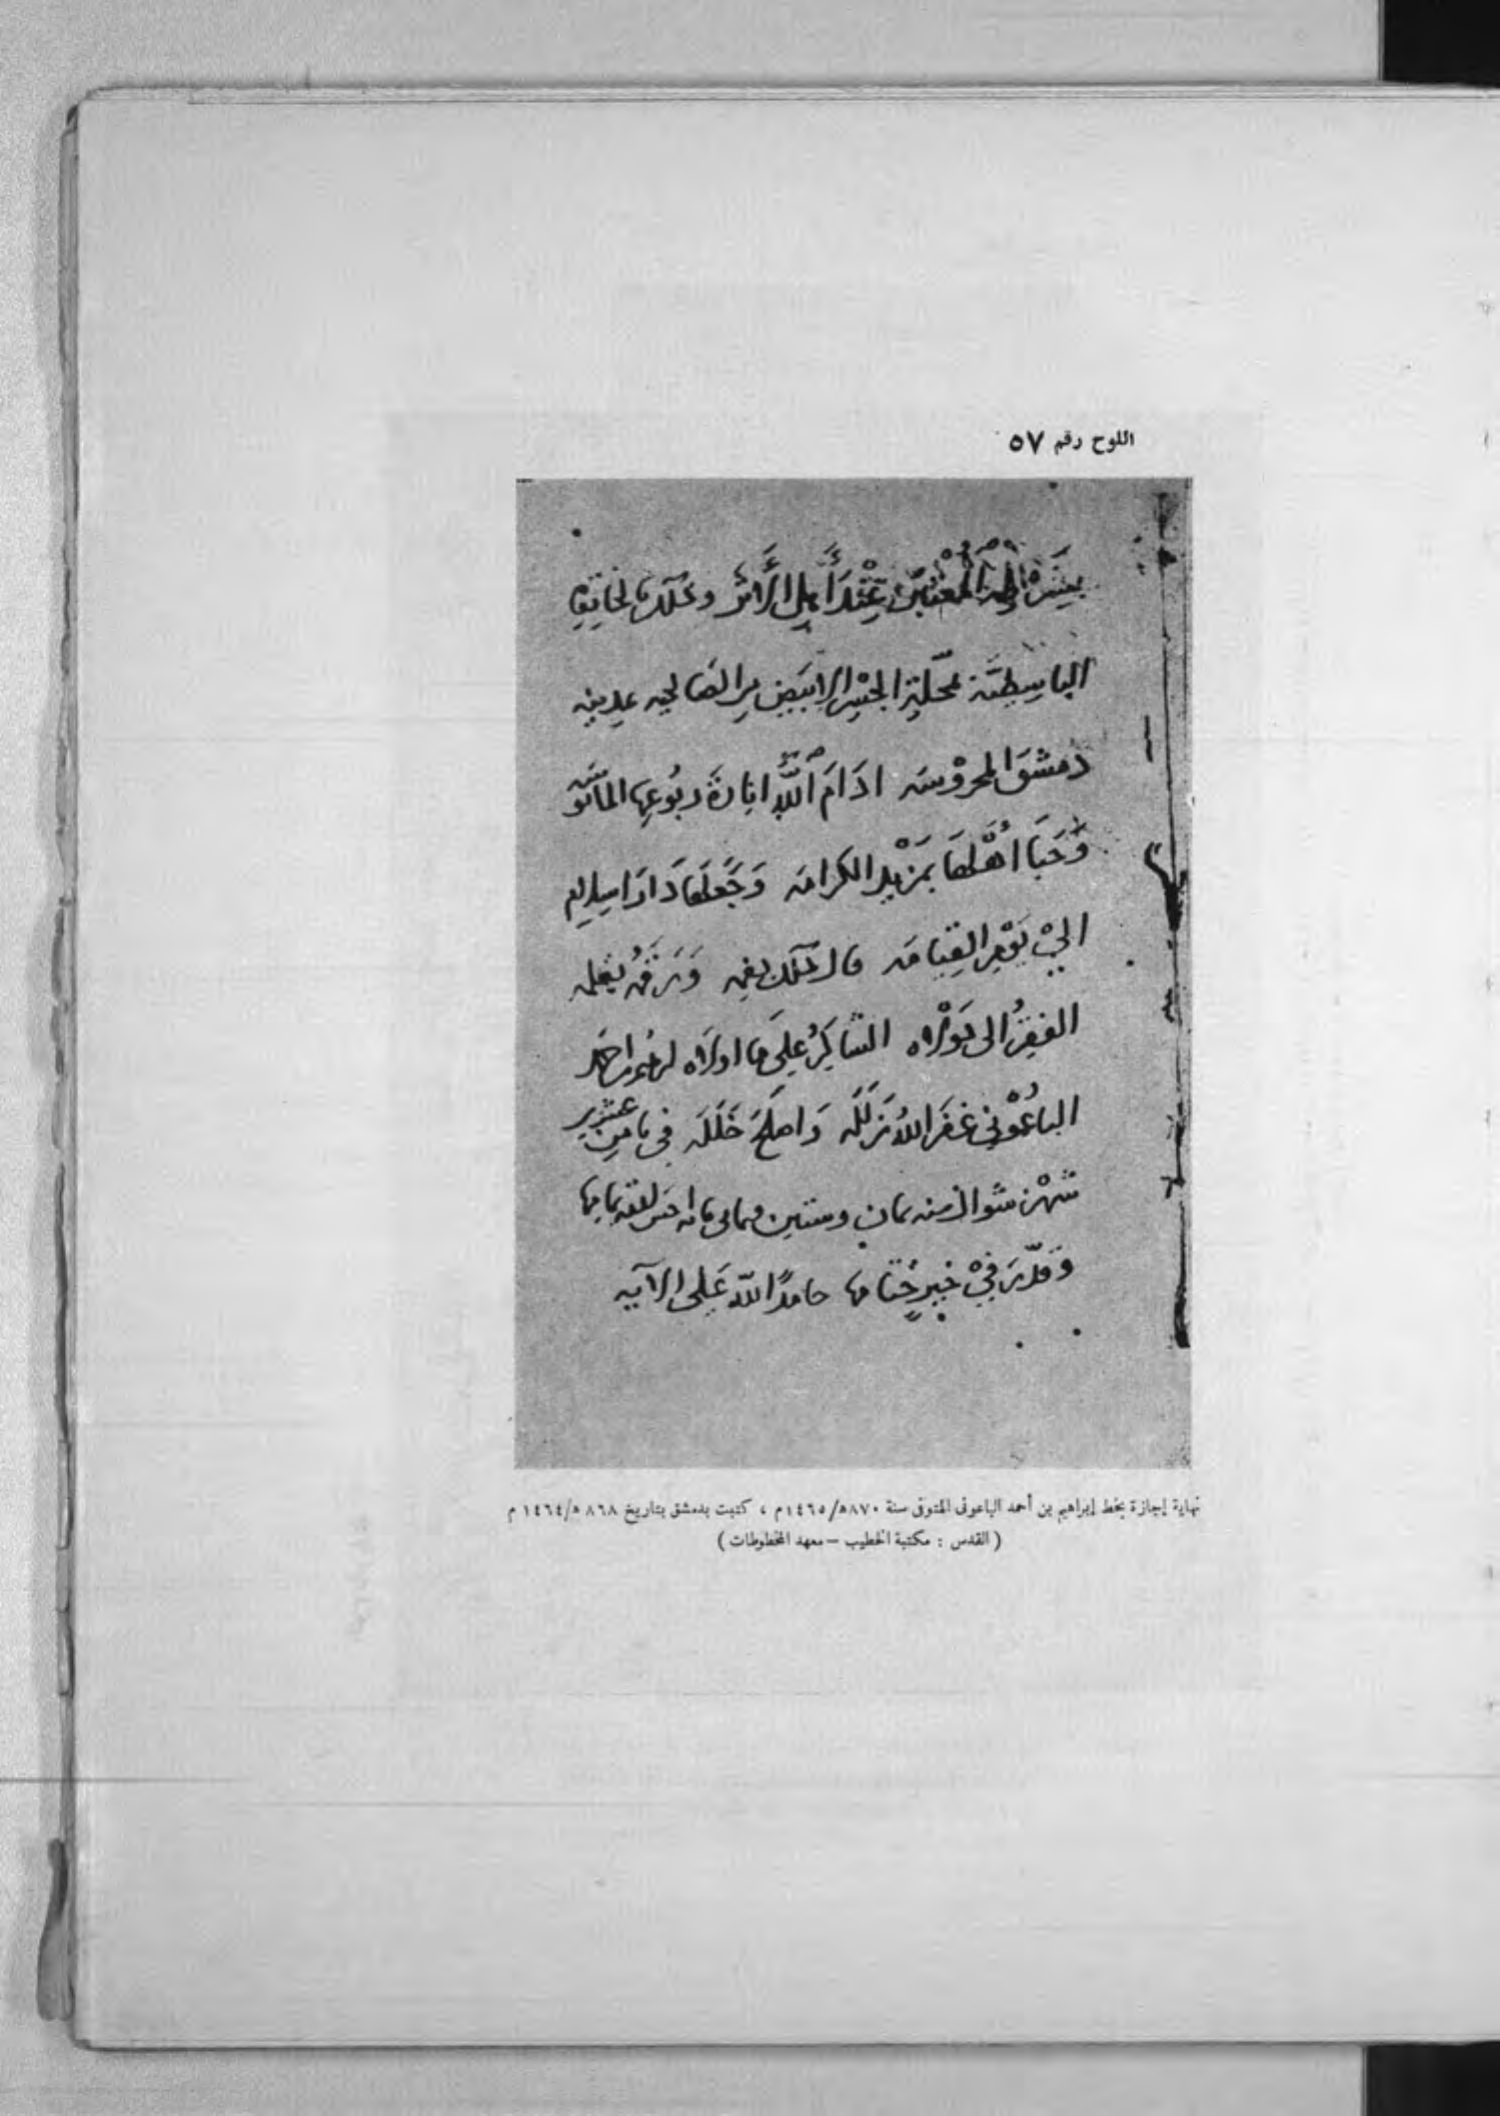 اللوح رقم ٥٧
بشرطه المعتبر عند أهل الأثر وذلك بالخانقاه
الباسطية بمحلة الجسر الابيض من الصالحيه بمدينه
دمشق المحروسه ادام الله انارة ربوعها المانوسه
وحبا أهلها بمزيد الكرامه وجعلها دار اسلام
الي يوم القيامه قال ذلك بفمه ورقمه بقلمه
الفقير الى مولاه الشاكر على ما اولاه ابرهيم بن احمد
الباعوني غفر الله زلله واصلح خلله في ثامن عشرين
شهر شوال سنه ثمان وستين وثماني مائه احسن الله
وقدر في خير ختامها حامدا لله على الآيه
نهاية إجازة بخط إبراهيم بن أحمد الباعونى المتوفى سنة ٨٧٠ه/١٤٦٥م ، كتبت بدمشق بتاريخ ٨٦٨ ه/١٤٦٤ م
( القدس : مكتبة الخطيب – معهد المخطوطات )